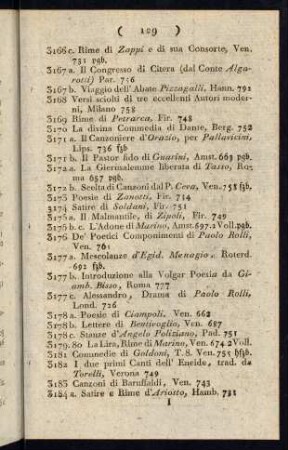 ( 109 )
3166 c. Rime di Zappi e di sua Consorte, Ven.
731 pgb.
3167 a. Il Congresso di Citera (dal Conte Alga-
rotti) Par. 786
3167 b. Viaggio dell' Abate Pizzagalli, Hann. 791
3168 Versi sciolti di tre eccellenti Autori moder-
ni, Milano 758
3169 Rime di Petrarca. Fir. 748
3170 La divina Commedia di Dante, Berg. 752
3171 a. Il Canzoniere d'Orazio, per Pallavicini.
Lips. 736 fsb
3171 b. Il Pastor fido di Guarini, Amst. 663 pgb.
3172 a. La Gierusalemme liberata di Tasso, Ro-
ma 657 pgb.
3172 b. Scelta di Canzoni dal P. Ceva, Ven. 758 fsb,
3173 Poesie di Zanotti, Fir. 714
3174 Satire di Soldani, Fir. 751
3175 a. Il Malmantile, di Zipoli, Fir. 749
3175 b. c. L'Adone di Marino, Amst. 697. 2 Voll. pgb.
3176 De' Poetici Componimenti di Paolo Rolli,
Ven. 761
3177 a. Mescolanze d'Egid. Menagio. Roterd.
692 fzb.
3177 b. Introduzione alla Volgar Poesia da Gi-
amb. Bisso, Roma 777
3177 c. Alessandro, Drama di Paolo Rolli,
Lond. 726
3178 a. Poesie di Ciampoli. Ven. 662
3178 b. Lettere di Bentivoglio, Ven. 687
3178 c. Stanze d'Angelo Poliziano, Pad. 751
3179. 80 La Lira, Rime di Marino, Ven. 674. 2 Voll.
3181 Commedie di Goldoni, T. 8. Ven. 751 hfzb.
3182 I due primi Canti dell' Eneide, trad. da
Torelli, Verona 749
3183 Canzoni di Baruffaldi, Ven. 743
3184 a. Satire e Rime d'Ariosto, Hamb. 732